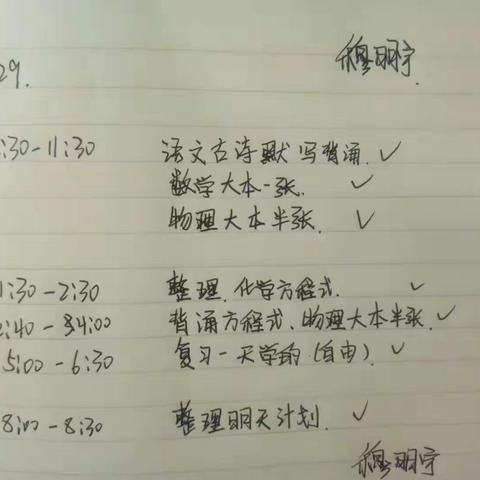 穆明宇
29.
:30-11:30 语文古诗默写背诵. ✓
数学大本一张. ✓
物理大本半张. ✓
1:30-2:30 整理.化学方程式. ✓
2:40-34:00 背诵方程式、物理大本半张. ✓
5:00-6:30 复习一天学的(自由). ✓
8:00-8:30 整理明天计划. ✓
穆明宇